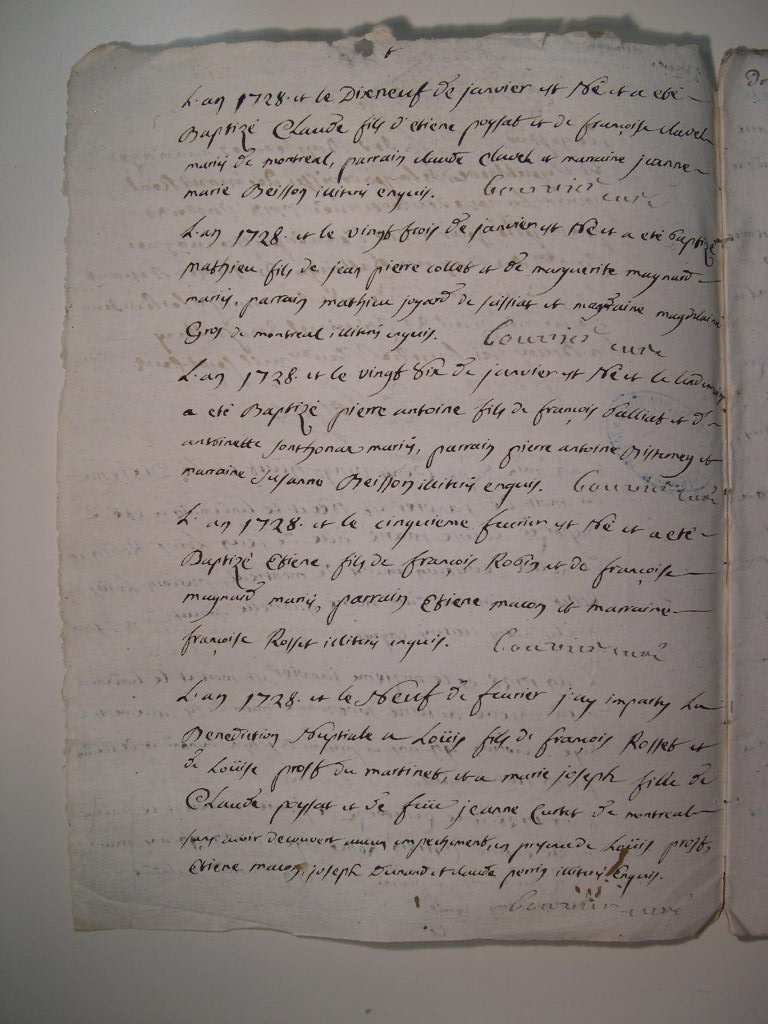 L'an 1728. et le Dixneuf de janvier est Né et a eté
Baptizé Claude fils d'etiene peyssat et de françoise clavel
mariés de montreal, parrain claude clavel et marraine jeanne
marie Beisson illiterés enquis. Gouvrier curé
L'an 1728. et le vingt trois de janvier est Né et a eté baptizé
mathieu fils de jean pierre collet et de marguerite maynard
mariés, parrain mathieu joyard de saissiat et marraine magdelaine
Gros de montreal illiterés enquis. curé
L'an 1728. et le vingt six de janvier est Né et le lendemain
a eté Baptizé pierre antoine fils de françois et d'
antoinette jonthonax mariés, parrain pierre antoine et
marraine susanne Beisson illiterés enquis. curé
L'an 1728. et le cinquieme fevrier est Né et a eté
Baptizé Etiene fils de françois Robin et de françoise
maynard mariés, parrain Etiene macon et marraine
françoise Rosset illiterés enquis. curé
L'an 1728. et le Neuf de fevrier j'ay imparty La
Benediction Nuptiale a Loüis fils de françois Rosset et
de Loüise prost du martinet, et a marie joseph fille de
Claude peyssat et de feüe jeanne Curtet de montreal
sans avoir decouvert aucun empechement, en presence de Loüis prost,
Etiene macon, joseph Durand et claude perrin illiterés Enquis.
curé